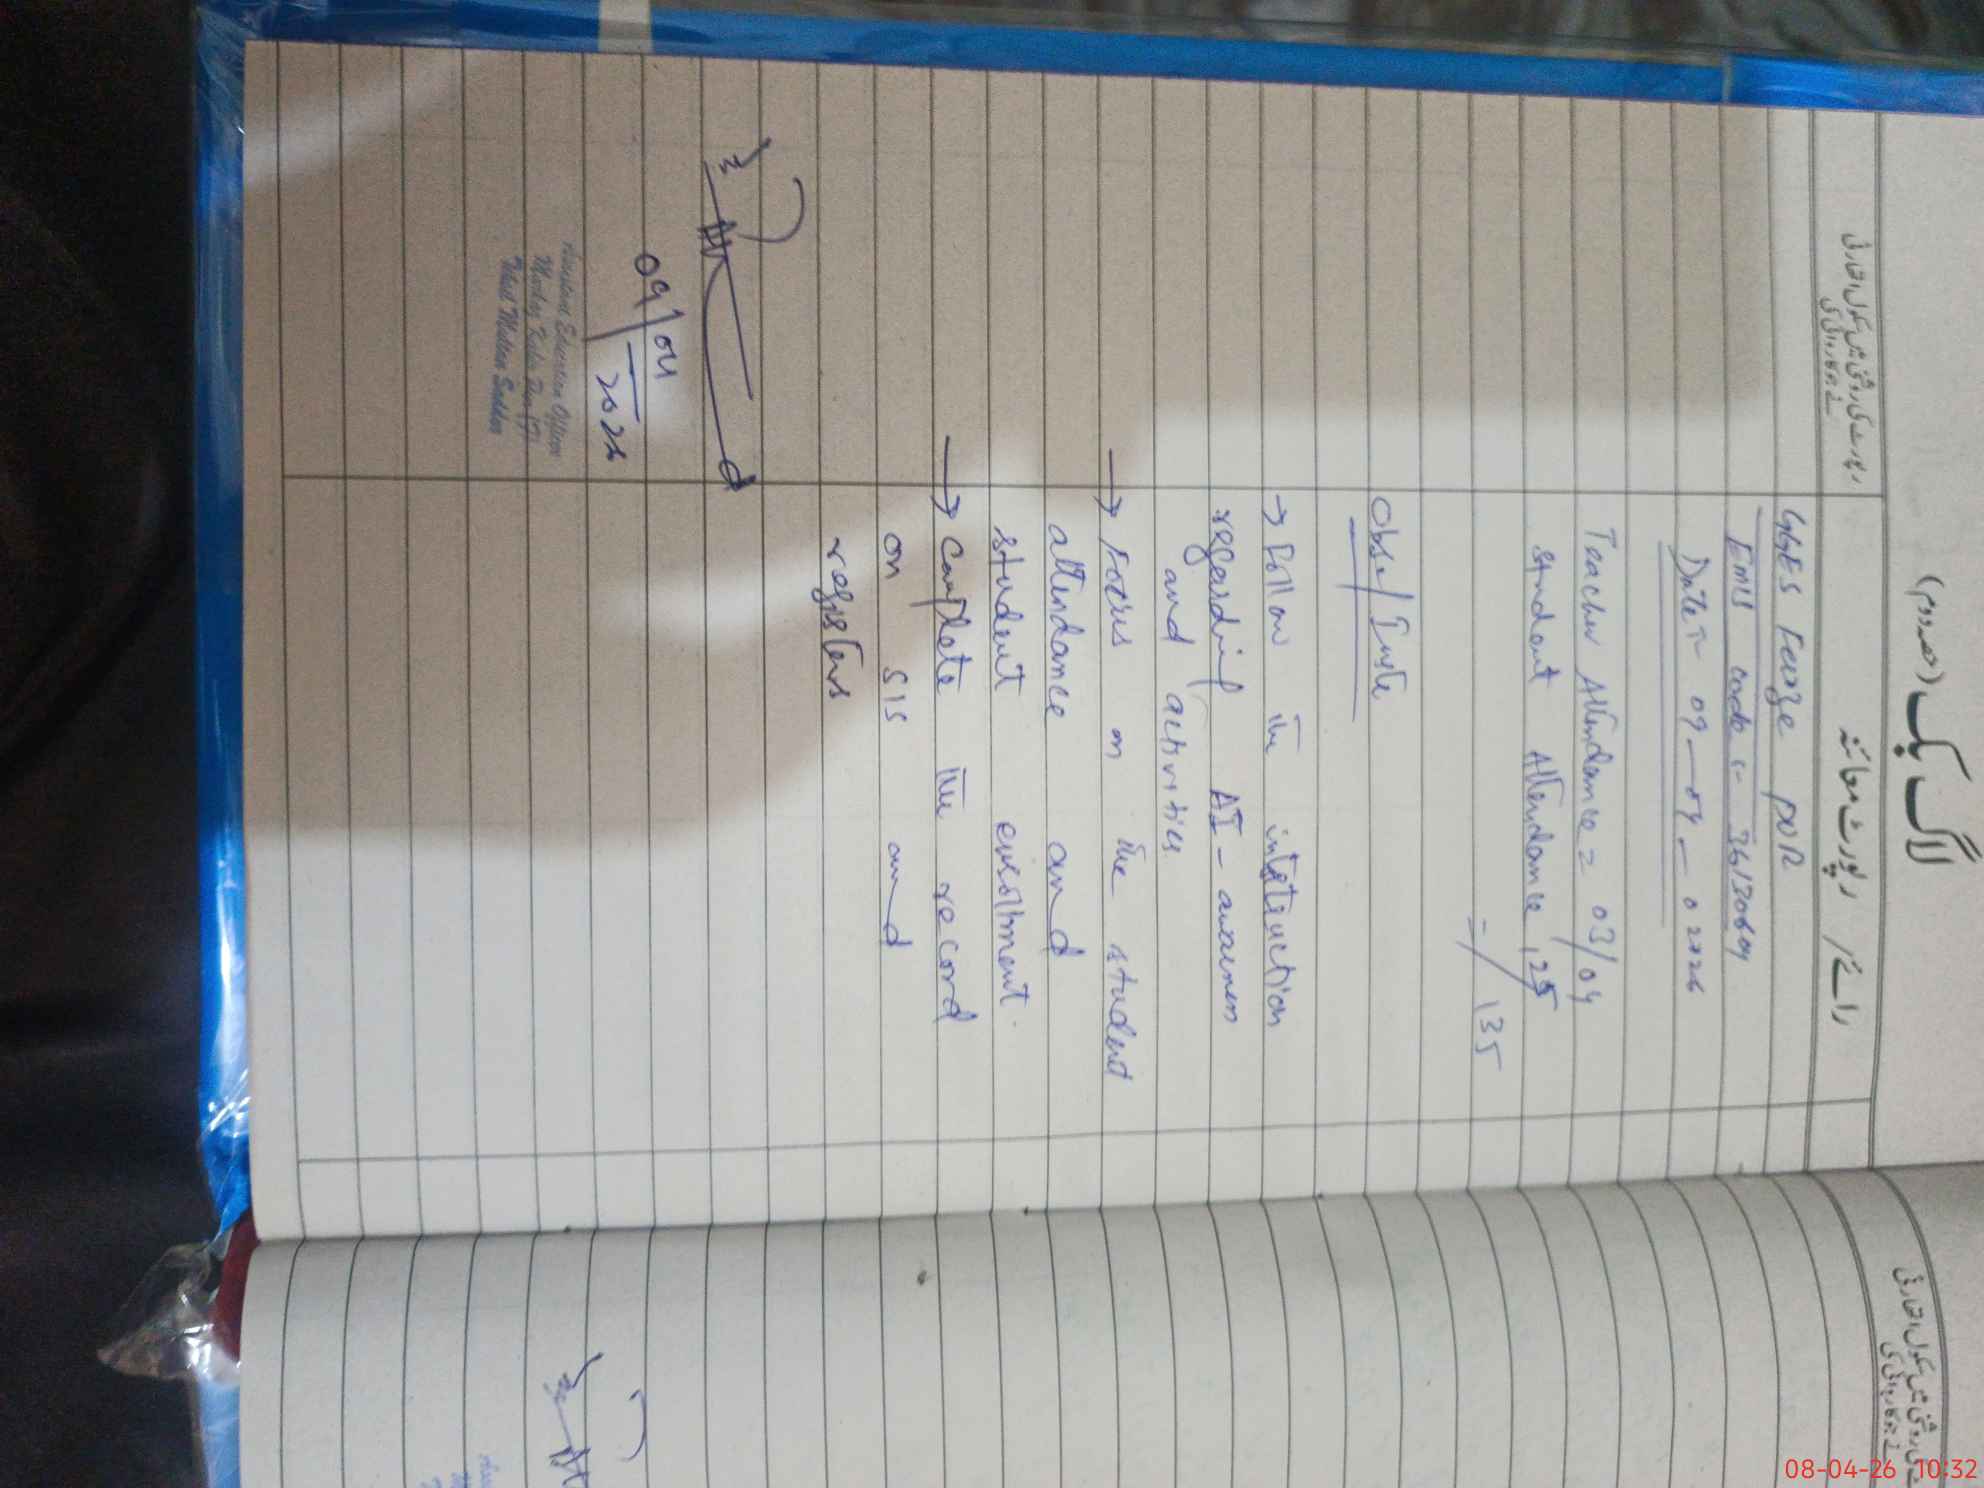 لاگ بک (حصہ دوم)
رائے / رپورٹ معائنہ
GGES Feroze PUR
EMIS code :- 36130604
Date :- 09-04-02026
Teacher Attendance = 03/04
Student Attendance 125
= / 135
Obs:/Inst:
→ Follow the instruction
regarding AI-awarness
and activities.
→ Focus on the student
attendance and
student enrollment.
→ Complete the record
on SIS and
registers
09/04
2026
Assistant Education Officer
08-04-26 10:32